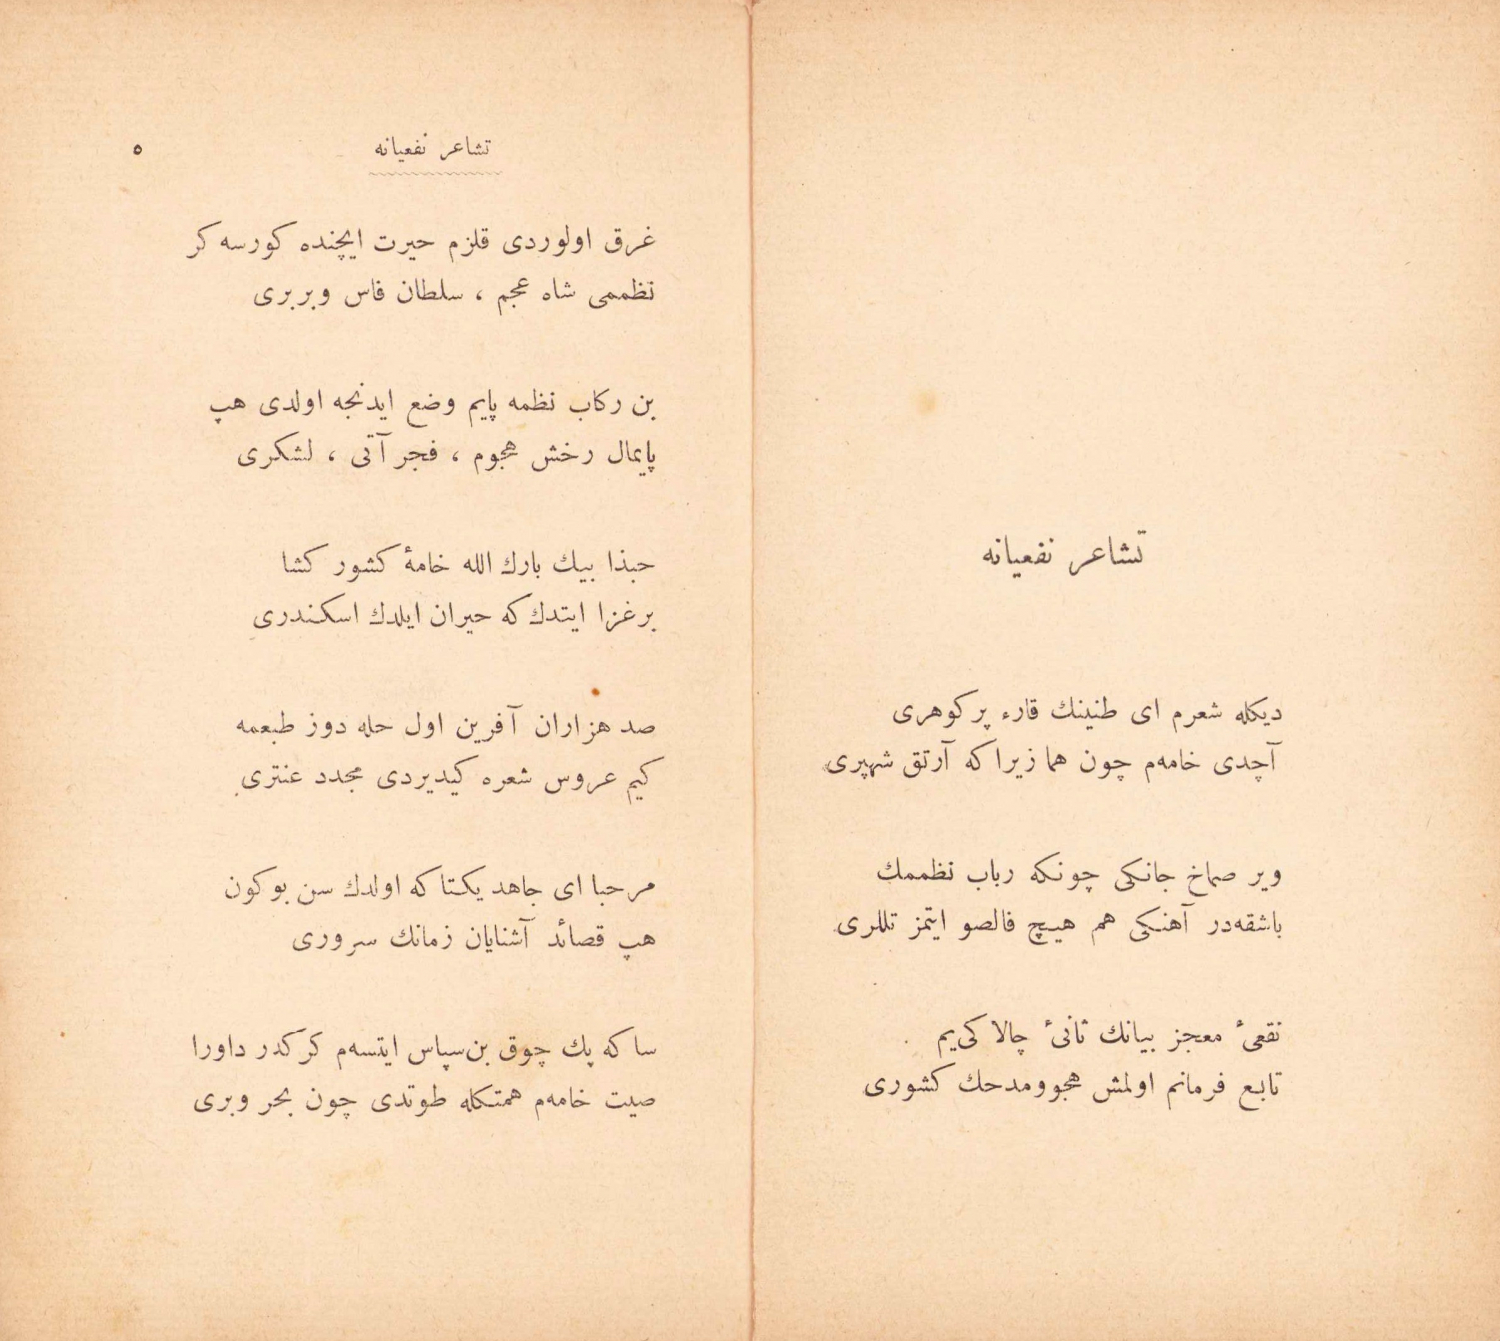 تشاعر نفعیانه
دیكله شعرم ای طنینك قارء پر كوهری
آچدی خامه‌م چون هما زیرا كه آرتق شهپری
ویر صماخ جانكی چونكه رباب نظممك
باشقه‌در آهنكی هم هیچ فالصو ایتمز تللری
نفعیٔ معجز بیانك ثانیٔ چالاكی‌یم
تابع فرمانم اولمش هجوومدحك كشوری
تشاعر نفعیانه
٥
غرق اولوردی قلزم حیرت ایچنده كورسه كر
نظممی شاه عجم ، سلطان فاس وبربری
بن ركاب نظمه پایم وضع ایدنجه اولدی هپ
پایمال رخش هجوم ، فجر آتی ، لشكری
حبذا بیك بارك الله خامۀ كشور كشا
برغزا ایتدك كه حیران ایلدك اسكندری
صد هزاران آفرین اول حله دوز طبعمه
كیم عروس شعره كیدیردی مجدد عنتری
مرحبا ای جاهد یكتا كه اولدك سن بوكون
هپ قصائد آشنایان زمانك سروری
سا كه پك چوق بن‌سپاس ایتسه‌م كركدر داورا
صیت خامه‌م همتكله طوتدی چون بحر وبری